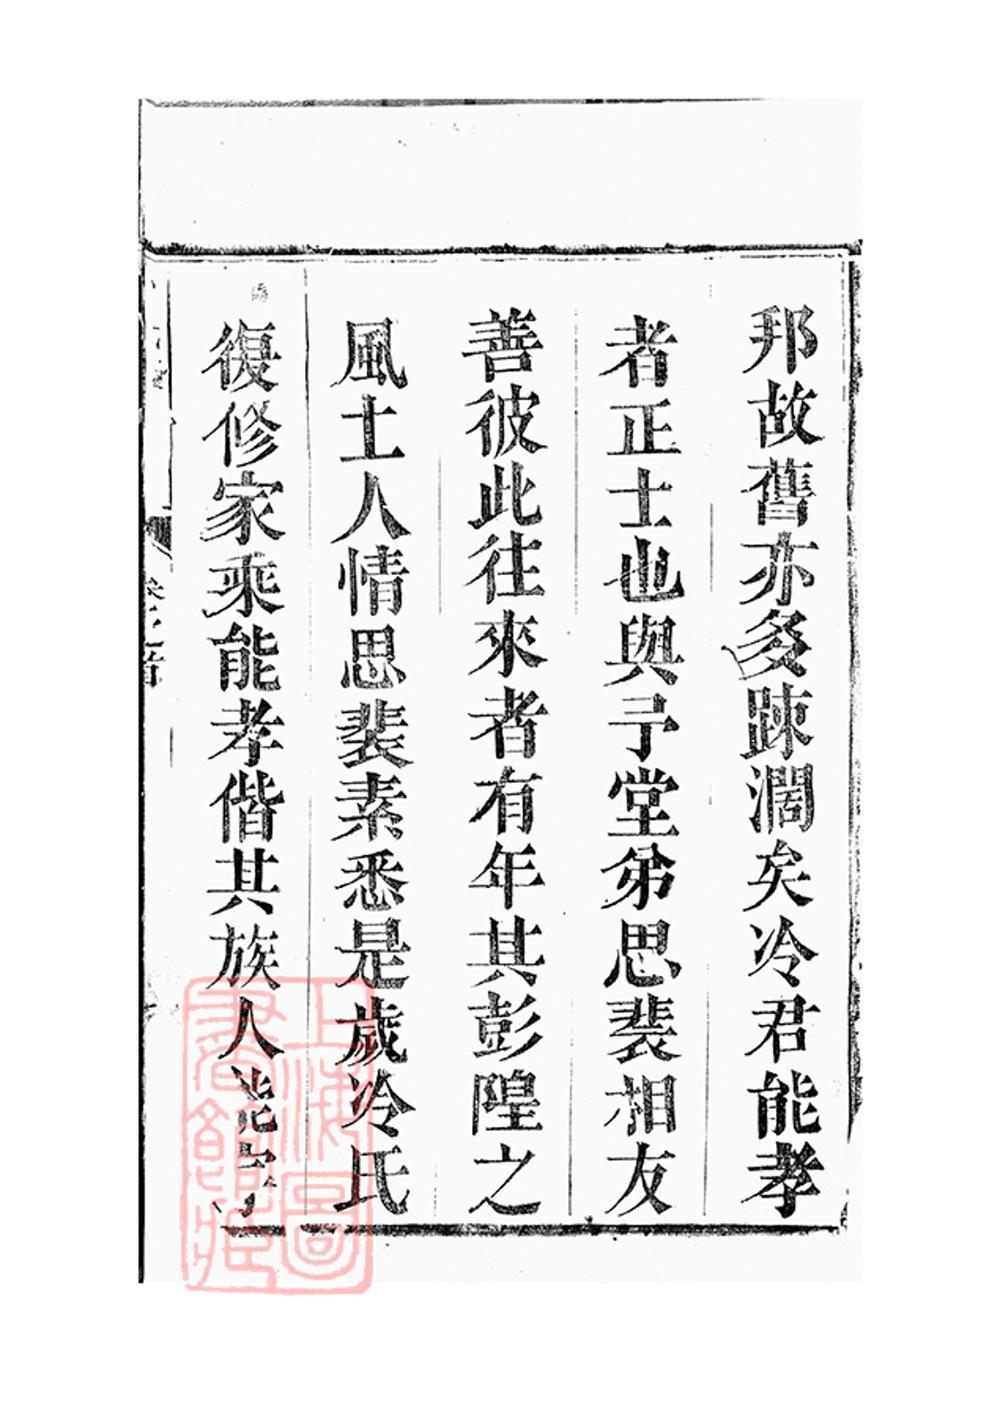 邦故舊亦多踈濶矣冷君能孝
者正士也與予堂弟思裴相友
善彼此往來者有年其彭隍之
風土人情思裴素悉是歲冷氏
復修家乘能孝偕其族人能宇
卷之首
上海圖書館藏